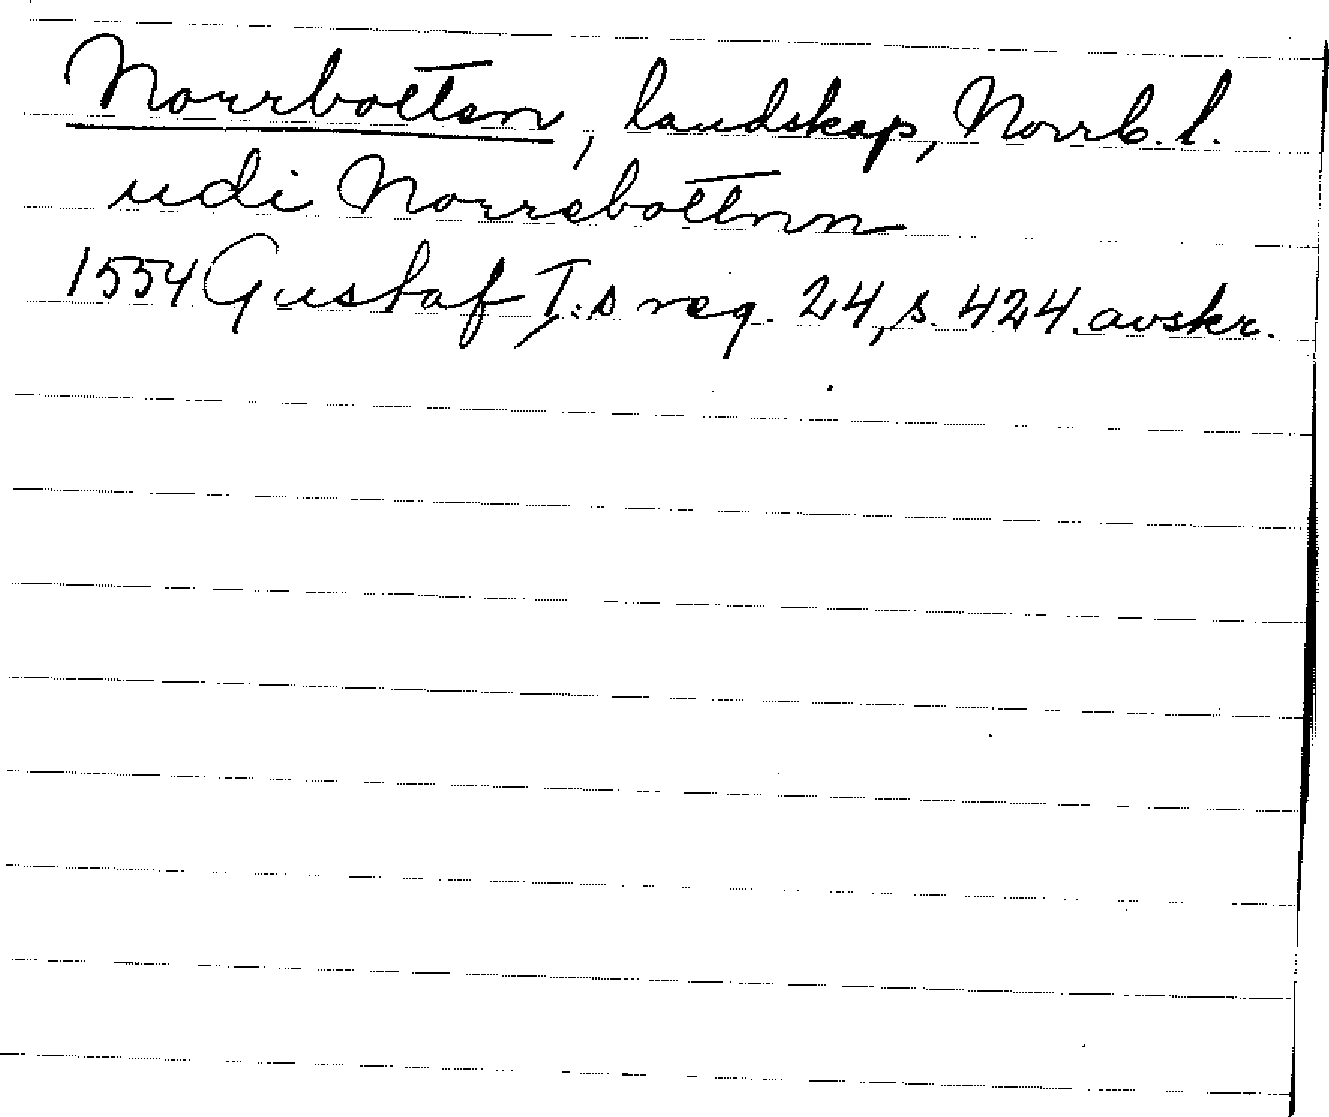 Norrbotten, landskap, Norrb. l.
udi Norrebottnn
1554 Gustaf I:s reg. 24, s. 424. avskr.